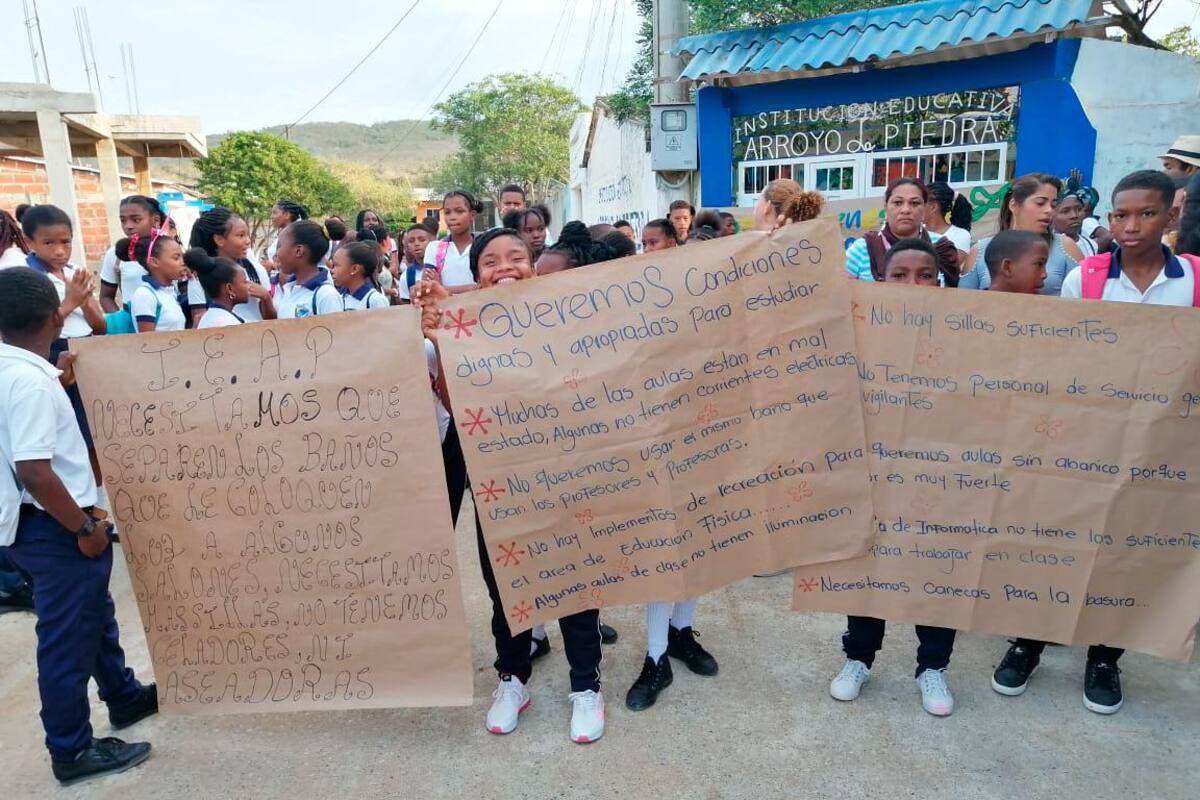 INSTITUCION EDUCATIVA
ARROYO de PIEDRA
I.E.A.P
NECESITAMOS QUE
SEPAREN LOS BAÑOS
QUE LE COLOQUEN
LUZ A ALGUNOS
SALONES, NECESITAMOS
MAS SILLAS, NO TENEMOS
CELADORES, NI
ASEADORAS
* Queremos Condiciones
dignas y apropiadas para estudiar
* Muchas de las aulas estan en mal
estado, Algunas no tienen corrientes electricas
* No queremos usar el mismo baño que
usan los Profesores y Profesoras.
* No hay Implementos de recreación para
el area de Educación Fisica......
* Algunas aulas de clase no tienen iluminacion
* No hay sillas suficientes
No Tenemos Personal de Servicio ge
vigilantes
queremos aulas sin abanico porque
r es muy Fuerte
a de Informatica no tiene los suficiente
para trabajar en clase
* Necesitamos canecas para la basura...